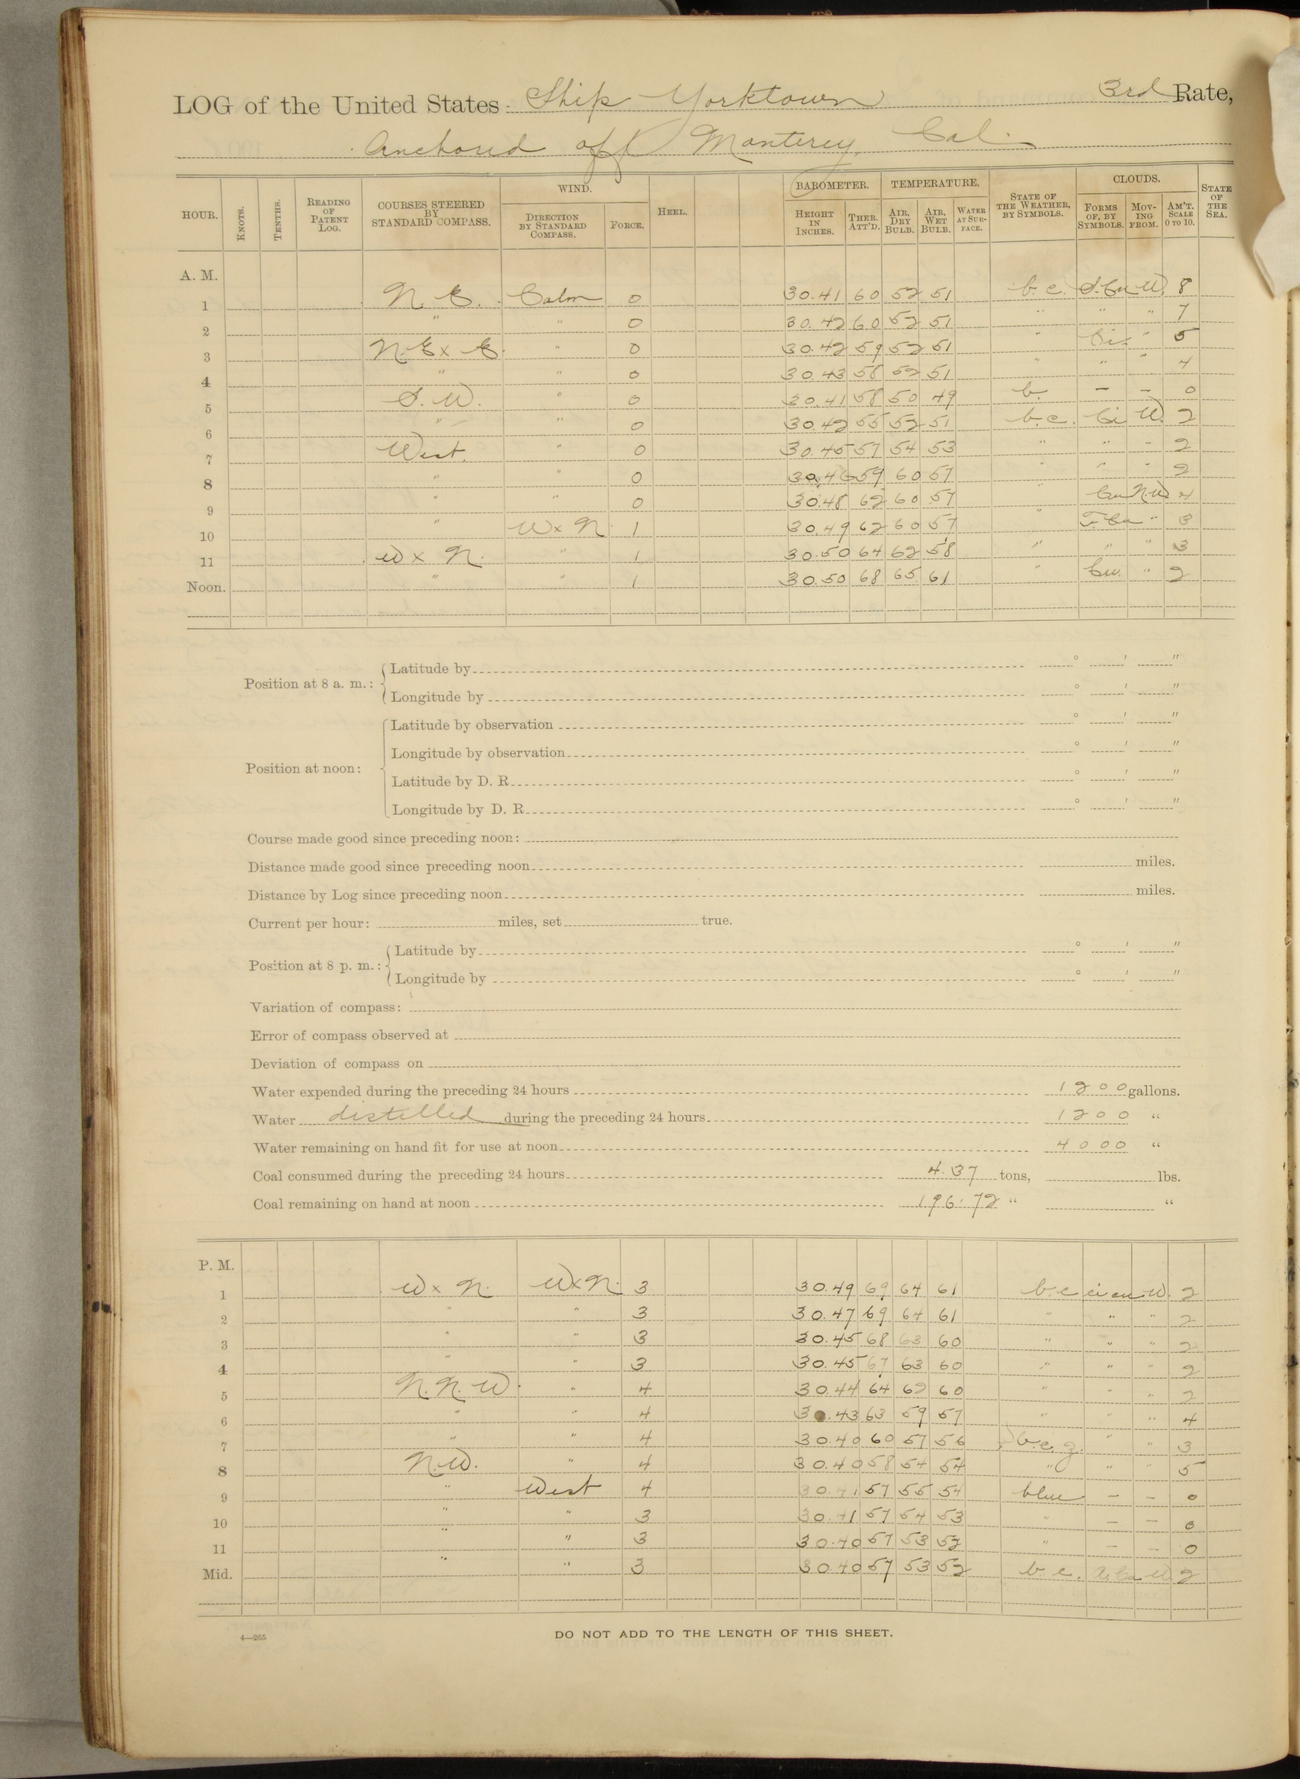 LOG of the United States Ship Yorktown 3rd Rate,
Anchored off Monterey, Cal.
HOUR. KNOTS. TENTHS. READING OF PATENT LOG. COURSES STEERED BY STANDARD COMPASS. WIND. DIRECTION BY STANDARD COMPASS. FORCE. HEEL. BAROMETER. HEIGHT IN INCHES. THER. ATT'D. TEMPERATURE. AIR, DRY BULB. AIR, WET BULB. WATER AT SURFACE. STATE OF THE WEATHER, BY SYMBOLS. CLOUDS. FORMS OF, BY SYMBOLS. MOVING FROM. AM'T. SCALE 0 TO 10. STATE OF THE SEA.
A. M.
1 N. E. Calm 0 30.41 60 52 51 b.c. S.Cu W. 8
2 " " 0 30.42 60 52 51 " " " 7
3 N.E x E. " 0 30.42 59 52 51 " Cis " 5
4 " " 0 30.43 58 52 51 " " " 4
5 S. W. " 0 30.41 58 50 49 b. — — 0
6 " " 0 30.42 55 52 51 b.c. Ci W. 2
7 West. " 0 30.45 57 54 53 " " " 2
8 " " 0 30.46 59 60 57 " " " 2
9 " " 0 30.48 62 60 57 " Cu N.W 4
10 " W x N 1 30.49 62 60 57 " F.Cu " 3
11 W x N. " 1 30.50 64 62 58 " " " 3
Noon. " " 1 30.50 68 65 61 " Cu. " 2
Position at 8 a. m.: Latitude by ° ' "
Longitude by ° ' "
Position at noon: Latitude by observation ° ' "
Longitude by observation ° ' "
Latitude by D. R. ° ' "
Longitude by D. R. ° ' "
Course made good since preceding noon:
Distance made good since preceding noon miles.
Distance by Log since preceding noon miles.
Current per hour: miles, set true.
Position at 8 p. m.: Latitude by ° ' "
Longitude by ° ' "
Variation of compass:
Error of compass observed at
Deviation of compass on
Water expended during the preceding 24 hours 1200 gallons.
Water distilled during the preceding 24 hours 1200 "
Water remaining on hand fit for use at noon 4000 "
Coal consumed during the preceding 24 hours 4.37 tons, lbs.
Coal remaining on hand at noon 196.72 " "
P. M.
1 W x N. W x N. 3 30.49 69 64 61 b.c ci cu W. 2
2 " " 3 30.47 69 64 61 " " " 2
3 " " 3 30.45 68 63 60 " " " 2
4 " " 3 30.45 67 63 60 " " " 2
5 N. N. W. " 4 30.44 64 62 60 " " " 2
6 " " 4 30.43 63 59 57 " " " 4
7 " " 4 30.40 60 57 56 b.c.g. " " 3
8 N.W. " 4 30.40 58 54 54 " " " 5
9 " West 4 30.41 57 55 54 blue — — 0
10 " " 3 30.41 57 54 53 " — — 0
11 " " 3 30.40 57 53 52 " — — 0
Mid. " " 3 30.40 57 53 52 b.c. W 2
4—265
DO NOT ADD TO THE LENGTH OF THIS SHEET.